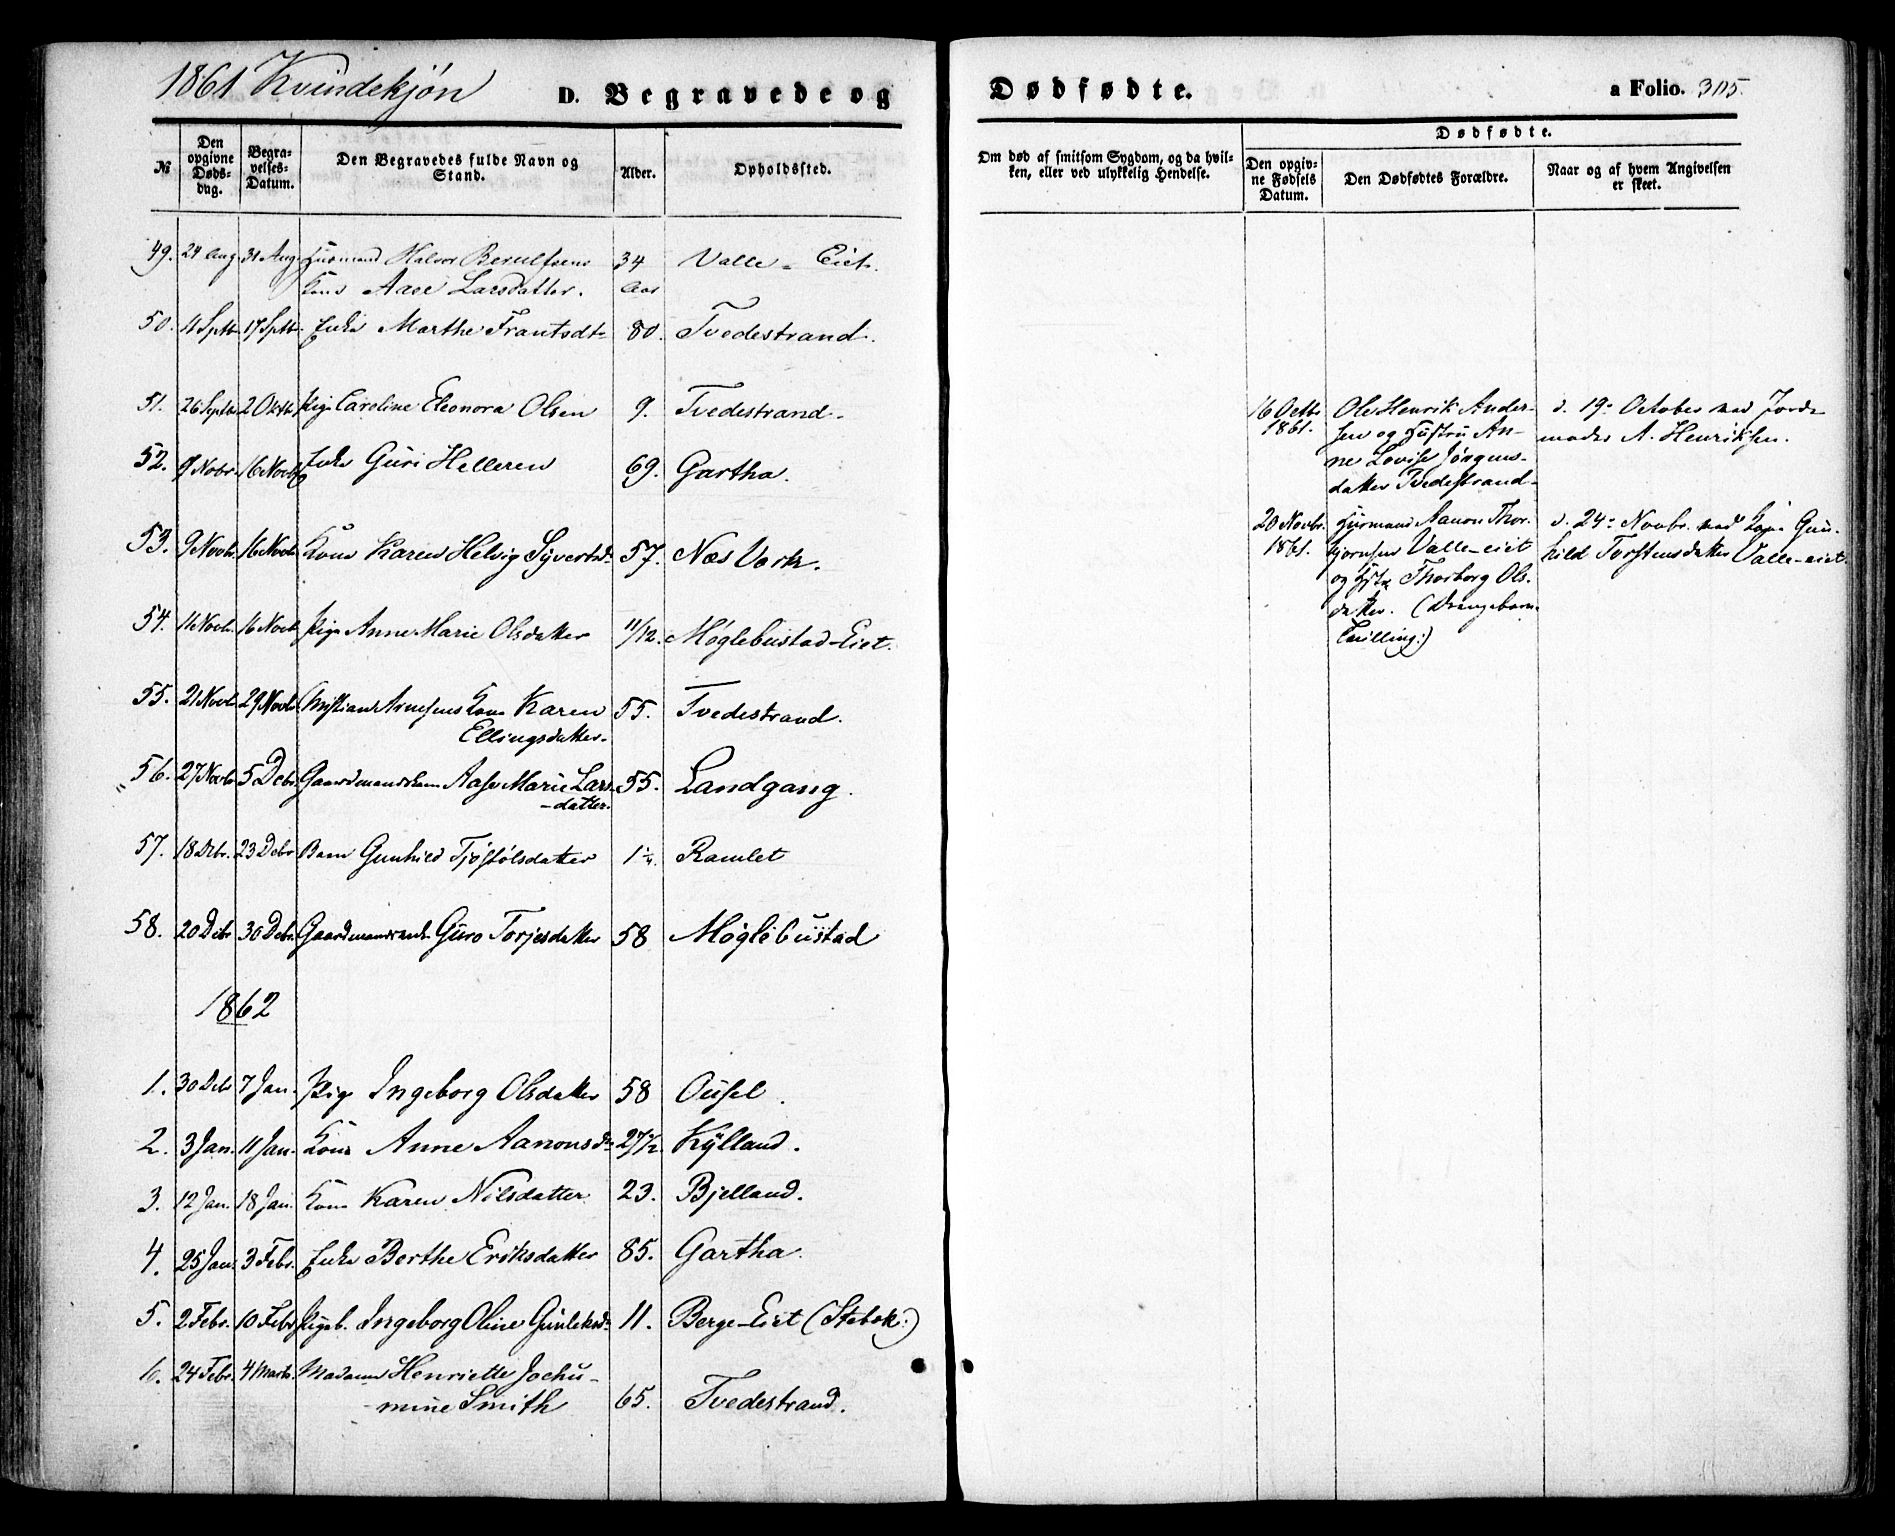 1861 Kvindekjøn
D. Begravede og
Dødfødte.
a Folio. 305.
№
Den opgivne Døds-dag.
Begra-velses-Datum.
Den Begravedes fulde Navn og Stand.
Alder.
Opholdssted.
Om død af smitsom Sygdom, og da hvil-ken, eller ved ulykkelig Hendelse.
Dødfødte.
Den opgiv-ne Fødsels Datum.
Den Dødfødtes Forældre.
Naar og af hvem Angivelsen er skeet.
49. 24 Aug 31 Aug. Husmand Halvor Berulfsens 34 Valle - Eiet.
Kone Aase Larsdatter. Aar
50. 11 Septb 17 Septb Enke Marthe Frantsdtr 80. Tvedestrand.
51. 26 Septb 2 Octb. Pige Caroline Eleonora Olsen 9. Tvedestrand.
52. 9 Novbr. 16 Novb Enke Guri Helleren 69. Gartha.
53. 9 Novb. 16 Novb. Kone Karen Helvig Syvertsd. 57. Næs Verk.
54. 11 Novb. 16 Novb. Pige Anne Marie Olsdatter 11/12. Møglebustad-Eiet.
55. 21 Novb. 29 Novb. Christian Arnesens Kone Karen 55. Tvedestrand.
Ellingsdatter.
56. 27 Novb 5 Debr. Gaardmandskone Aase Marie Lars- 55. Landgang.
-datter.
57. 18 Debr. 23 Debr Barn Gunhild Tjøstølsdatter 1 1/4. Ramlet
58. 20 Debr 30 Debr. Guro Torjesdatter 58 Møglebustad
1862
1. 30 Debr 7 Jan. Pige Ingeborg Olsdatter 58 Ousel.
2. 3 Jan. 11 Jan. Kone Anne Aanonsd. 27 1/2 Kylland.
3. 12 Jan. 18 Jan. Kone Karen Nilsdatter 23. Bjelland.
4. 25 Jan. 3 Febr. Enke Berthe Eriksdatter 85. Gartha.
5. 2 Febr. 10 Febr Pigeb. Ingeborg Oline Gunleksd. 11. Berge-Eiet (Stebok:)
6. 24 Febr. 4 Marts. Madame Henriette Jochu-
mine Smith 65. Tvedestrand.
16 Octbr 1861.
Ole Henrik Ander-
sen og Hustru An-
ne Lovise Jørgens-
datter Tvedestrand.
d. 19. October ved Jorde
moder A. Henriksen.
20 Novbr. 1861.
Husmand Aanon Thor-
bjørnsens Valle-eiet
og Hstr Thorborg Ols-
datter. (Drengebarn
Tvilling:)
d. 24. Novbr. ved Kone Gun-
hild Torstensdatter Valle-eiet.